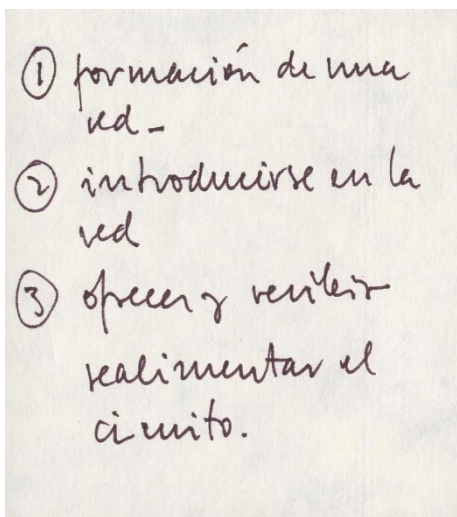 ① formación de una
red -
② introducirse en la
red
③ ofrecer y recibir
realimentar el
circuito.